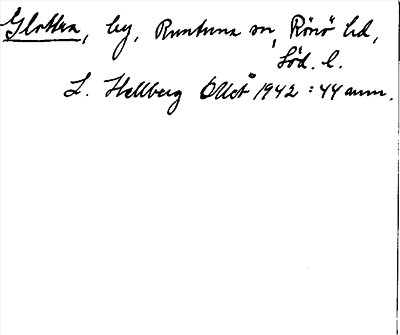 Glottra, by, Runtuna sn, Rönö hd,
Söd. l.
L. Hellberg OUÅ 1942 : 44 anm.